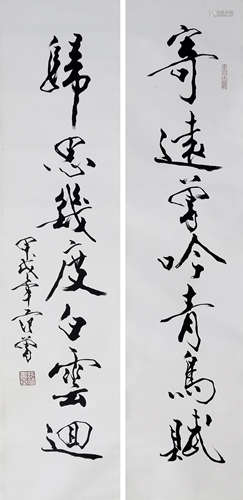 寄遠曾吟青鳥賦
歸思幾度白雲迴
甲戌年范曾